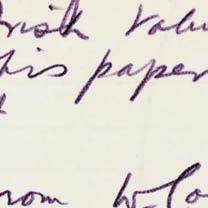 Irish Volu
this paper
from W. Co